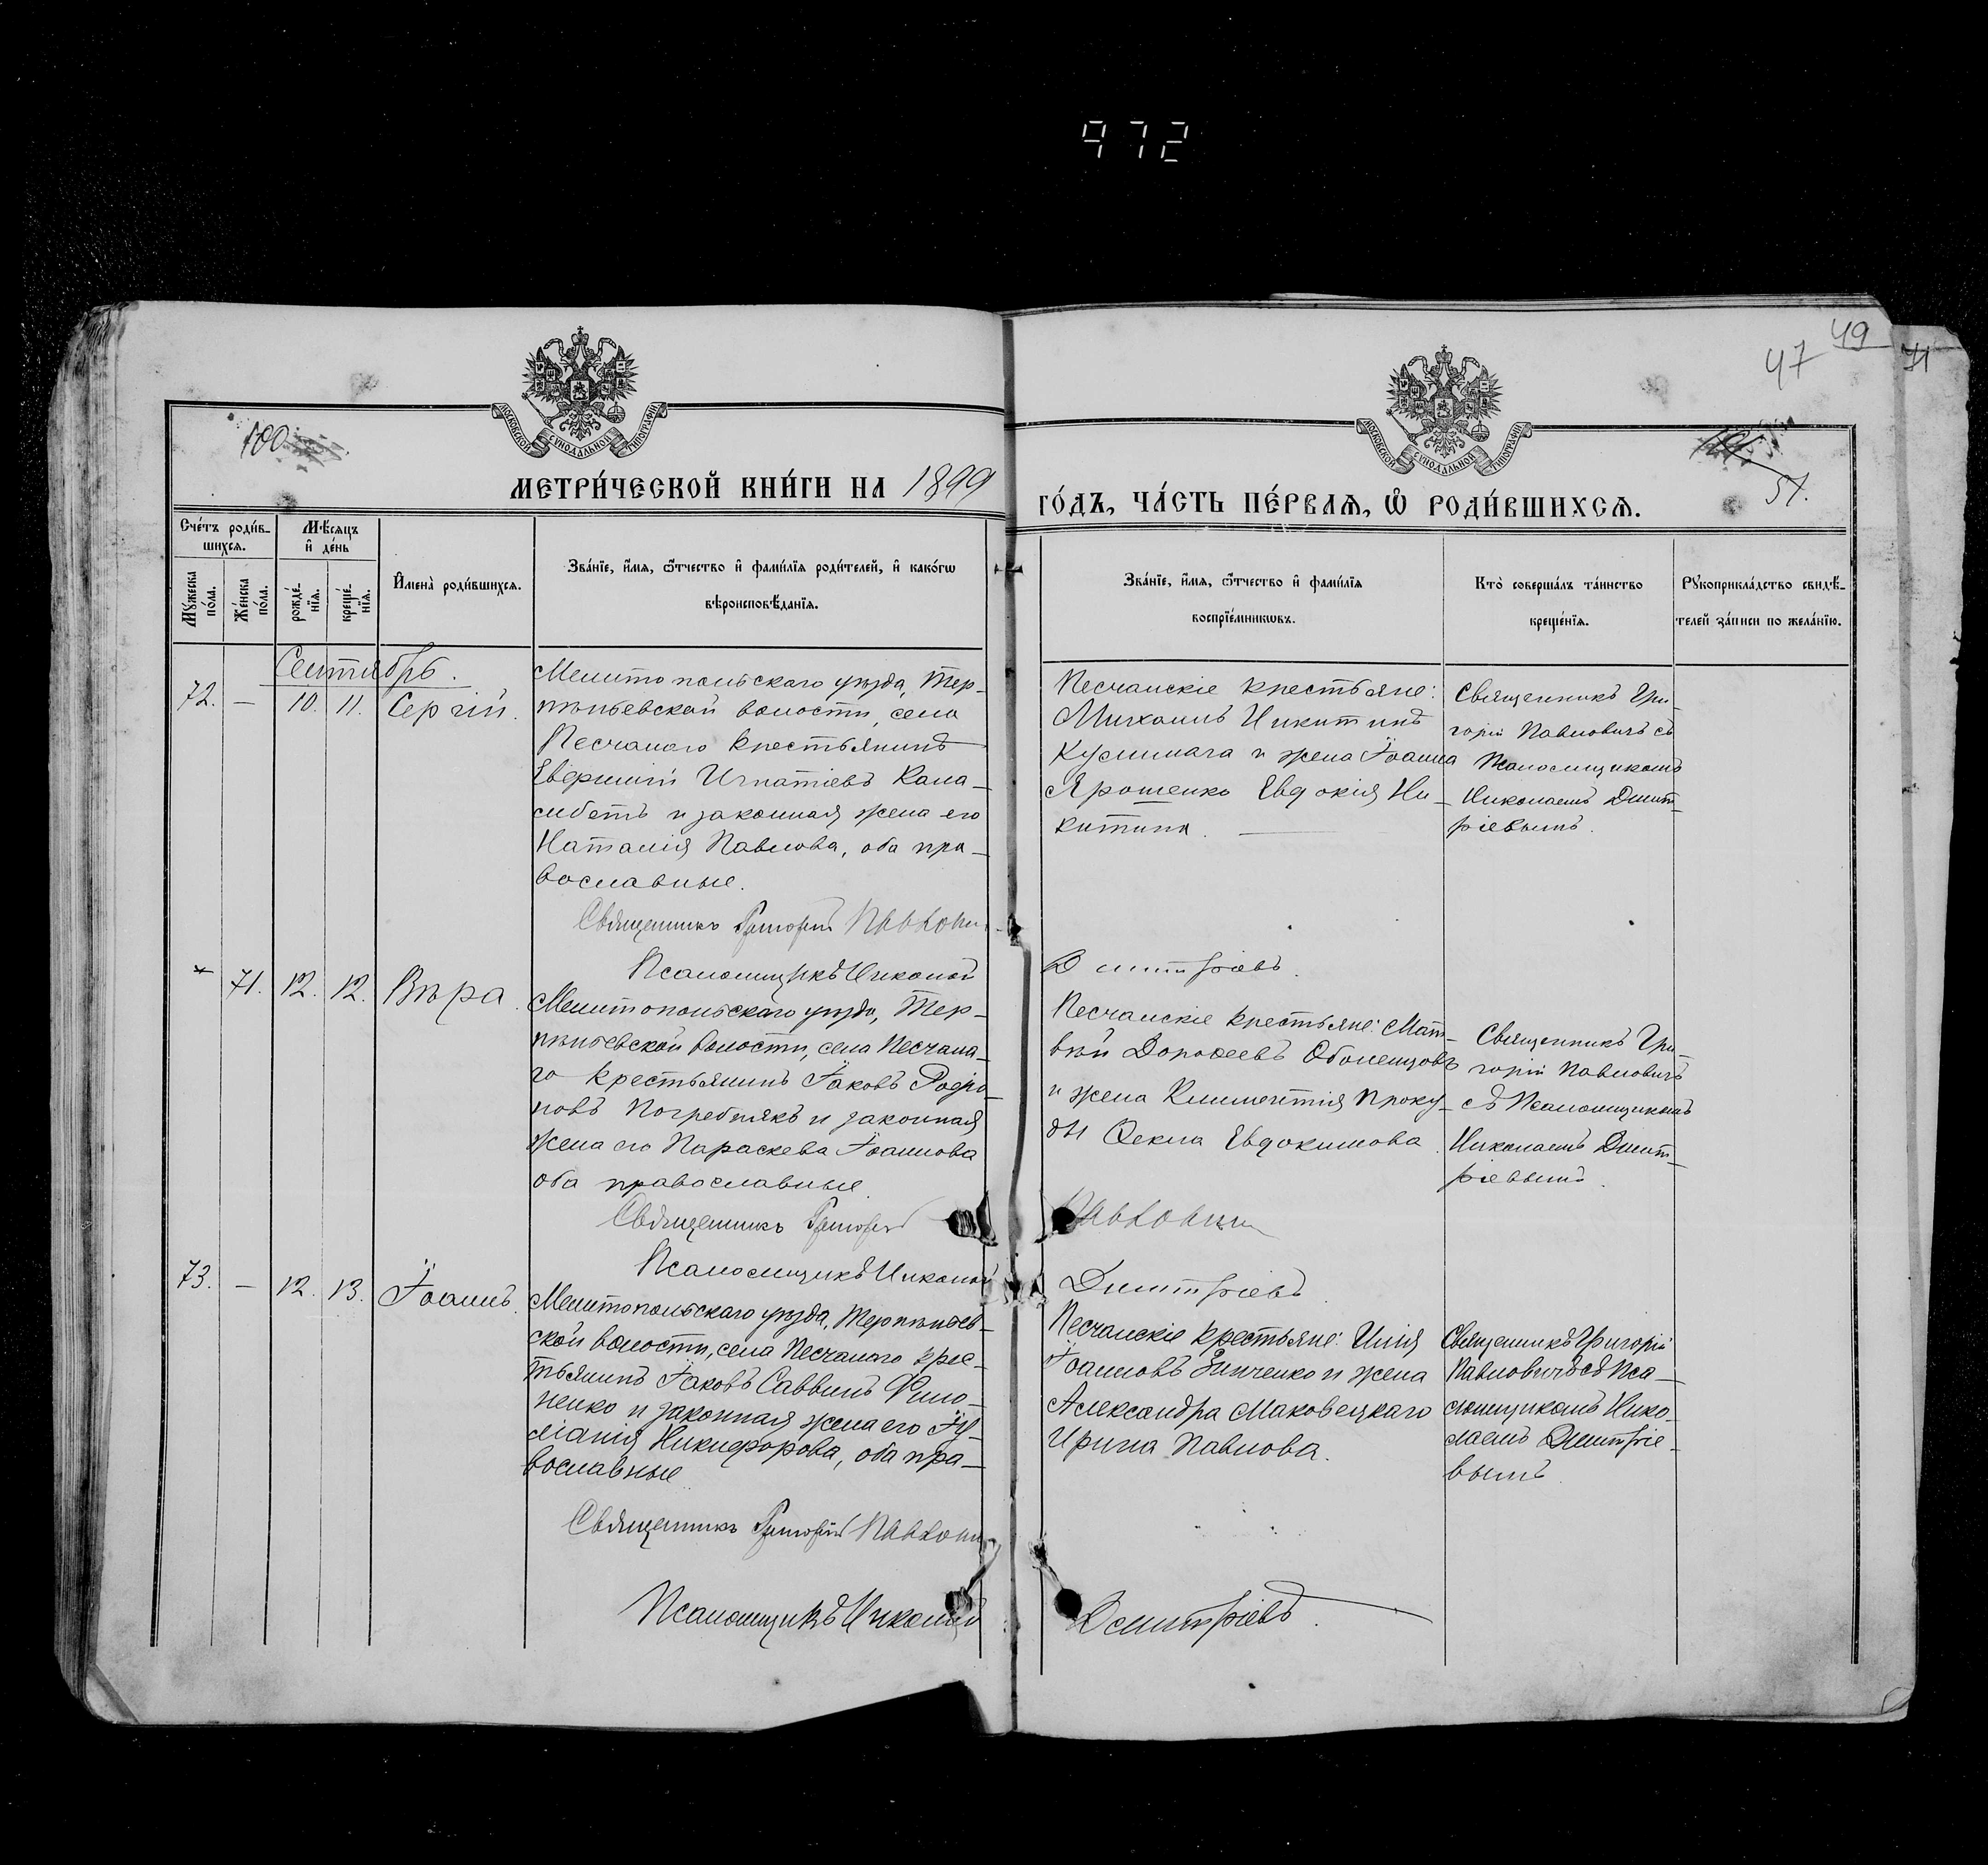 972
49
47
71
100
51.
МОСКОВСКОЙ СѴНОДАЛЬНОЙ ТИПОГРАФІИ
МОСКОВСКОЙ СѴНОДАЛЬНОЙ ТИПОГРАФІИ
МЕТРИ́ЧЕСКОЙ КНИ́ГИ НА 1899
ГО́ДЪ, ЧА́СТЬ ПЕ́РВАѦ, Ѡ҆ РОДИ́ВШИХСѦ.
Сче́тъ роди́в-
шихся.
Мѣ́сяцъ
и҆ де́нь
Мꙋ́жеска
по́ла.
Же́нска
по́ла.
рожде́-
нїя.
креще́-
нїя.
И҆мена̀ роди́вшихся.
Зва́нїе, и҆́мя, ѻ҆́тчество и҆ фами́лїя роди́телей, и҆ како́гѡ
вѣроисповѣ́данїя.
Зва́нїе, и҆́мя, ѻ҆́тчество и҆ фами́лїя
воспрїе́мникѡвъ.
Кто̀ соверша́лъ та́инство
креще́нїя.
Рꙋкоприкла́дство свидѣ́-
телей за́писи по жела́нїю.
Сентябрь.
72. — 10. 11. Сергій.
Мелитопольскаго уѣзда, Тер-
пѣньевской волости, села
Песчанаго крестьянинъ
Игнатіевъ Кала-
и законная жена его
Наталія Павлова, оба пра-
вославные.
Священникъ Григорій
Псаломщикъ Николай
Песчанскіе крестьяне:
Михаилъ Никитинъ
и жена Іоанна
Ярошенко Евдокія Ни-
китина.
Священникъ Гри-
горій Павловичъ съ
Псаломщикомъ
Николаемъ Димит-
ріевымъ.
Димитріевъ.
71. 12. 12. Вѣра.
Мелитопольскаго уѣзда, Тер-
пѣньевской волости, села Песчана-
го крестьянинъ Іаковъ Родіо-
новъ Погребнякъ и законная
жена его Параскева Іоаннова
оба православные.
Священникъ Григорій
Псаломщикъ Николай
Песчанскіе крестьяне: Мат-
вѣй Дороѳеевъ Оболенцовъ
и жена Климентія Проку-
ды Ѳекла Евдокимова.
Священникъ Гри-
горій Павловичъ
съ Псаломщикомъ
Николаемъ Димит-
ріевымъ.
Димитріевъ
73. — 12. 13. Іоаннъ.
Мелитопольскаго уѣзда, Терпѣньев-
ской волости, села Песчанаго крес-
тьянинъ Іаковъ Саввинъ Фило-
ненко и законная жена его Іу-
ліанія Никифорова, оба пра-
вославные
Священникъ Григорій
Псаломщикъ Николай
Песчанскіе крестьяне: Илія
Іоанновъ Зинченко и жена
Александра Маковецкаго
Ирина Павлова.
Священникъ Григорій
Павловичъ съ Пса-
ломщикомъ Нико-
лаемъ Димитріе-
вымъ
Димитріевъ.